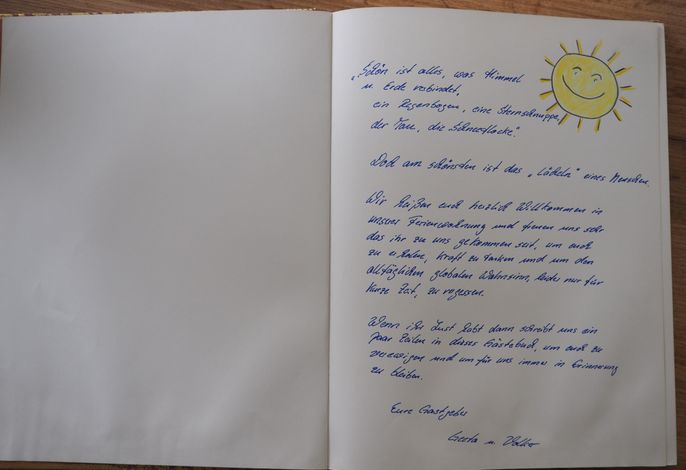 „Schön ist alles, was Himmel
u. Erde verbindet,
ein Regenbogen, eine Sternschnuppe,
der Tau, die Schneeflocke".
Doch am schönsten ist das „Lächeln" eines Menschen.
Wir heißen euch herzlich Willkommen in
unserer Ferienwohnung und freuen uns sehr
das ihr zu uns gekommen seit, um euch
zu erholen, Kraft zu tanken und um den
alltäglichen globalen Wahnsinn, leider nur für
kurze Zeit, zu vergessen.
Wenn ihr Lust habt dann schreibt uns ein
paar Zeilen in dieses Gästebuch, um euch zu
verewigen und um für uns immer in Erinnerung
zu bleiben.
Eure Gastgeber
u. Volker